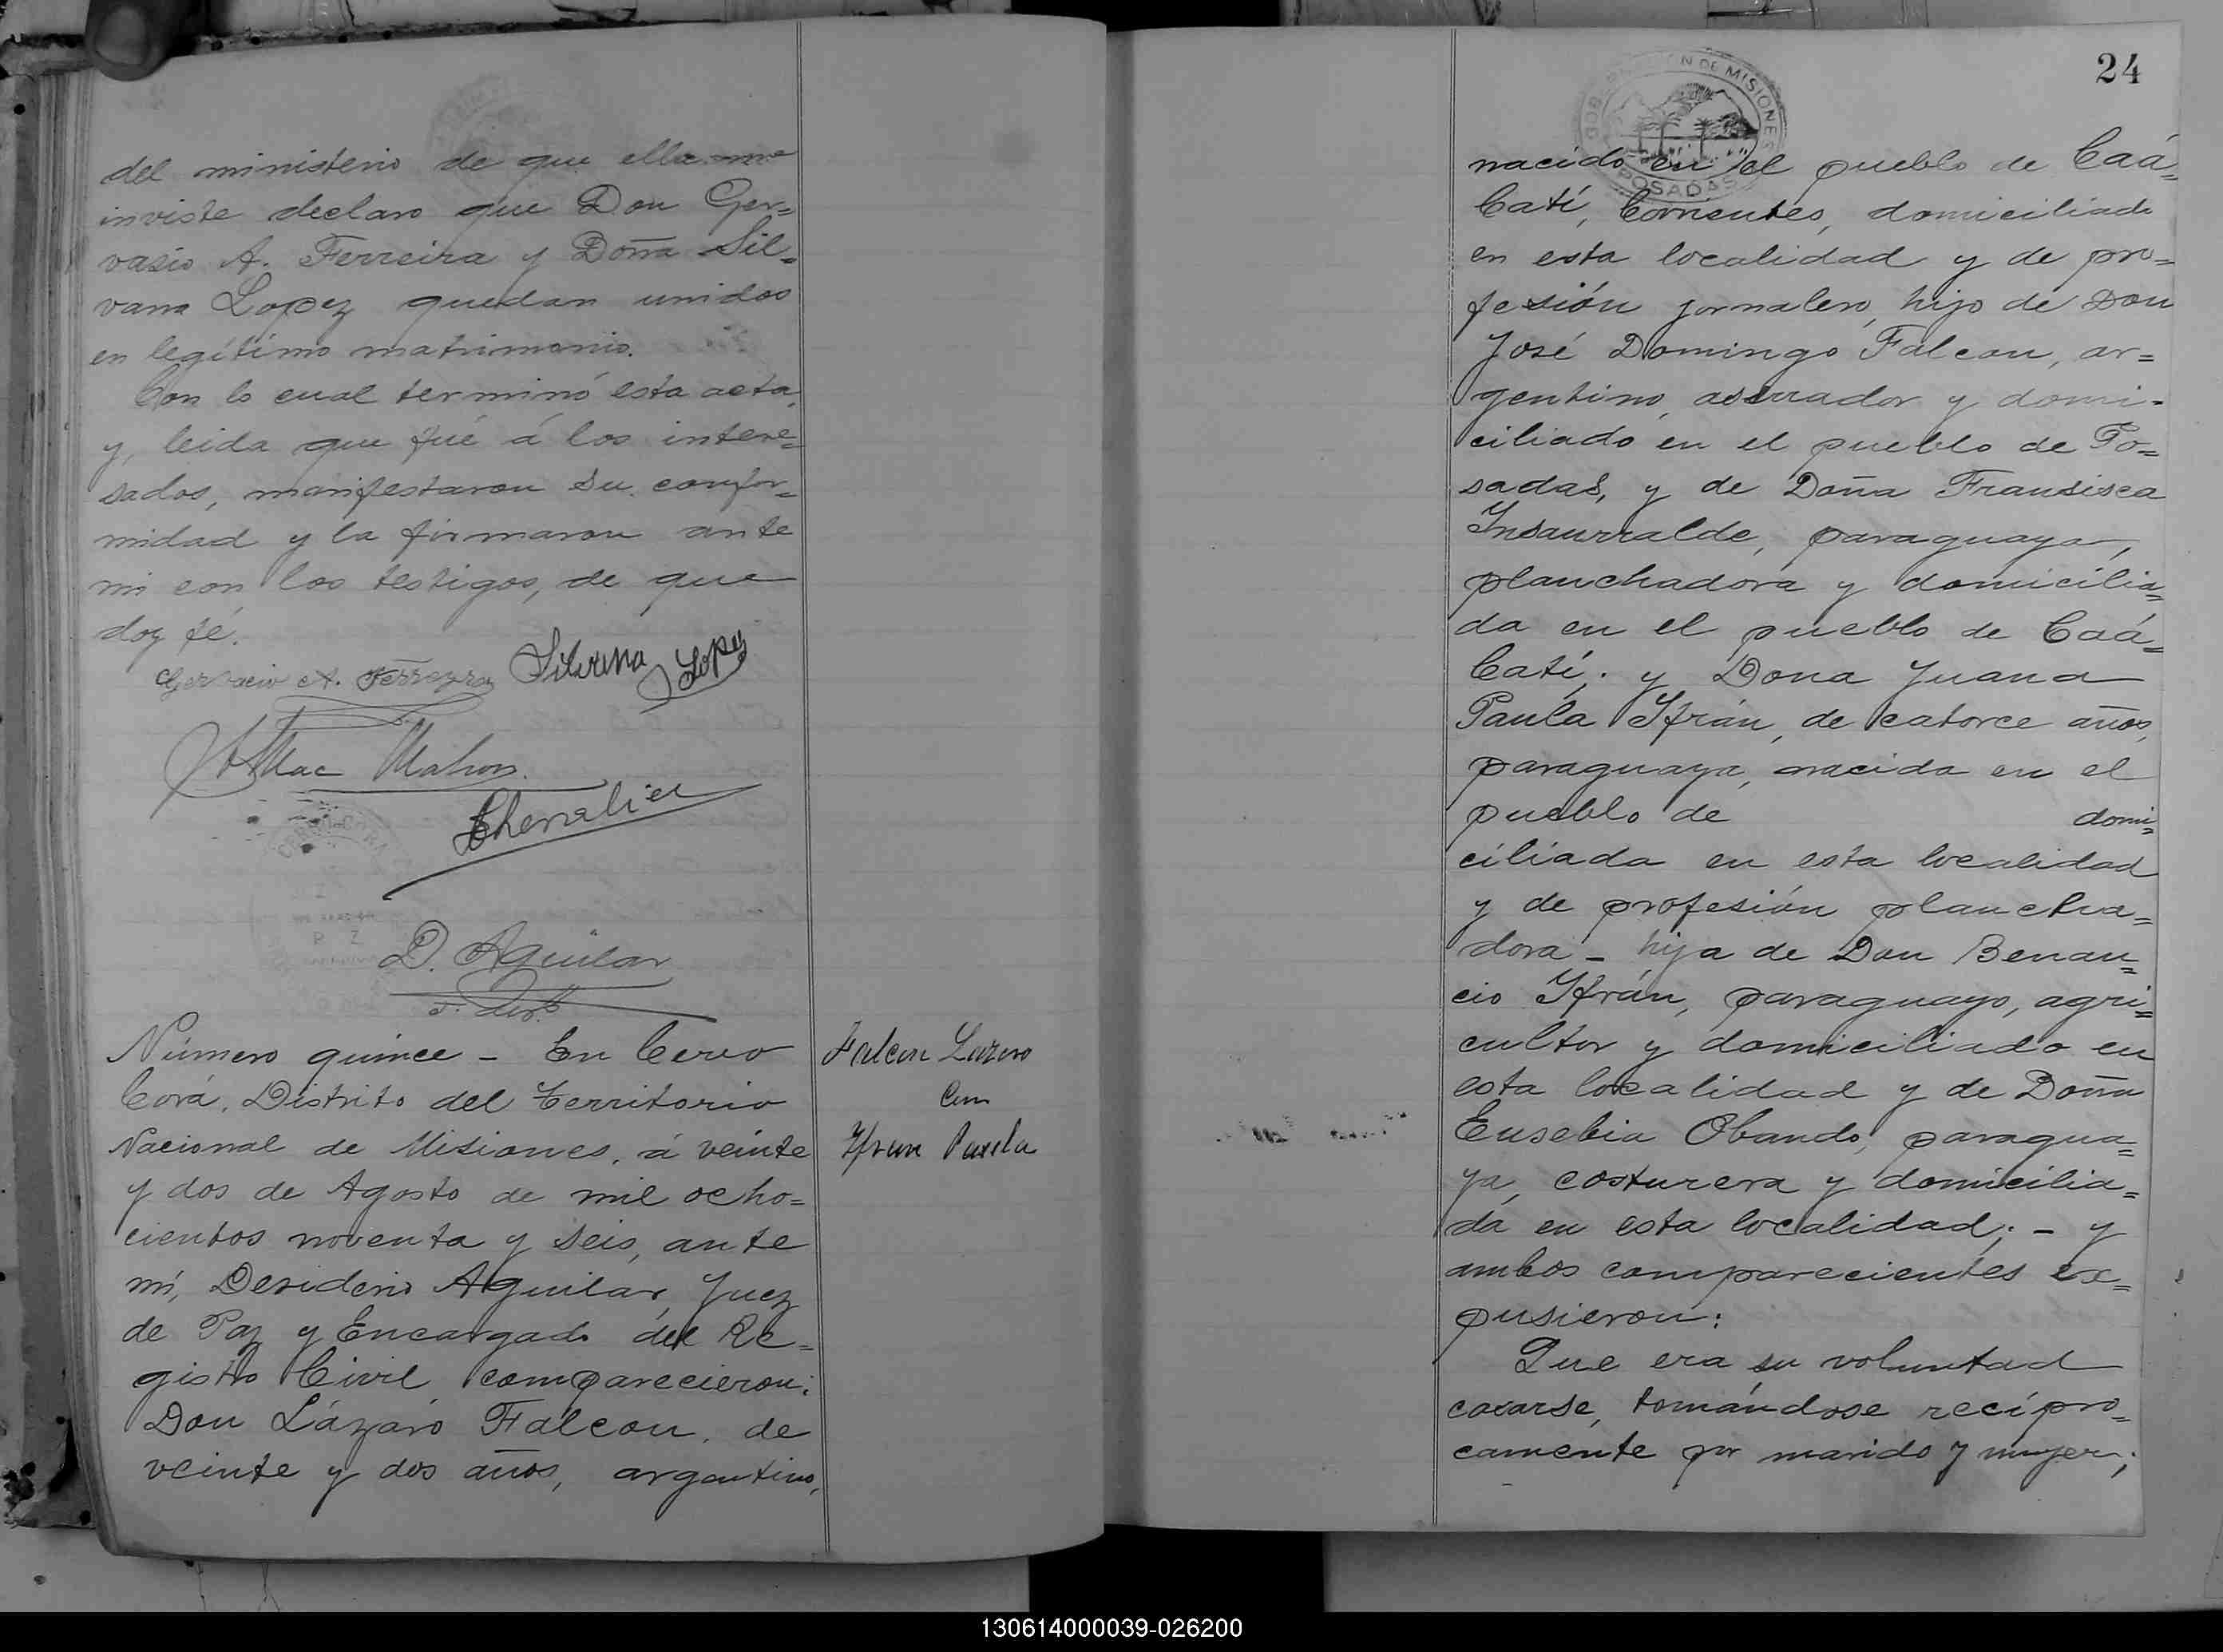 del ministerio de que ella me
inviste declaro que Don Ger=
vasio A. Ferreira y Doña Sil=
vana Lopez quedan unidos
en legítimo matrimonio.
Con lo cual terminó esta acta,
y, leida que fué á los intere=
sados, manifestaron su confor=
midad y la firmaron ante
mi con los testigos, de que
doy fé.
Gervacio A. Ferreyra Silvana Lopez
Mac Mahon
Chevalier
D. Aguilar
Número quince - En Cerro
Corá, Distrito del Territorio
Nacional de Misiones, á veinte
y dos de Agosto de mil ocho=
cientos noventa y seis, ante
mí, Desiderio Aguilar, Juez
de Paz y Encargado del Re=
gistro Civil comparecieron:
Don Lázaro Falcon, de
veinte y dos años, argentino,
Falcon Lazaro
Con
Yfran Paula
24
GOBERNACIÓN DE MISIONES
POSADAS
nacido en el pueblo de Caá=
Catí, Corrientes, domiciliado
en esta localidad y de pro=
fesión jornalero, hijo de Don
José Domingo Falcon, ar=
gentino, aserrador y domi-
ciliado en el pueblo de Po=
sadas, y de Doña Fransisca
Insaurralde, paraguaya,
planchadora y domicilia=
da en el pueblo de Caá=
Catí; y Dona Juana
Paula Yfrán, de catorce años,
paraguaya, nacida en el
pueblo de domi=
ciliada en esta localidad
y de profesión plancha=
dora - hija de Don Benan=
cio Yfrán, paraguayo, agri=
cultor y domiciliado en
esta localidad y de Doña
Eusebia Obando, paragua=
ya, costurera y domicilia=
da en esta localidad; - y
ambos comparecientes ex=
pusieron:
Que era su voluntad
casarse, tomándose recípro=
camente por marido y mujer;
130614000039-026200